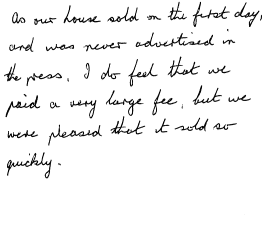 As our house sold on the first day,
and was never advertised in
the press, I do feel that we
paid a very large fee, but we
were pleased that it sold so
quickly.